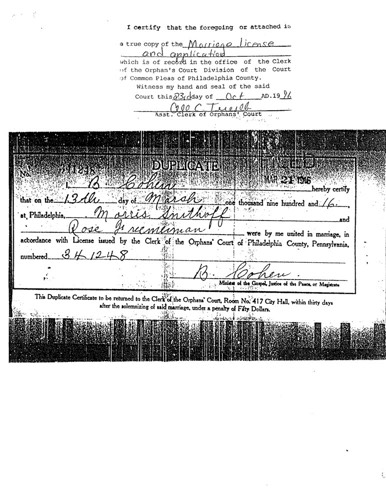 I certify that the foregoing or attached is
a true copy of the Marriage license
and application
which is of record in the office of the Clerk
of the Orphan's Court Division of the Court
of Common Pleas of Philadelphia County.
Witness my hand and seal of the said
Court this 23rd day of Oct AD.1996
Asst. Clerk of Orphans' Court
No. DUPLICATE FILED
MAR 21 1916
I, B. Cohen hereby certify
that on the 13th day of March one thousand nine hundred and 16,
at Philadelphia, Morris Smithoff and
Rose were by me united in marriage, in
accordance with License issued by the Clerk of the Orphans' Court of Philadelphia County, Pennsylvania,
numbered 341248
B. Cohen
Minister of the Gospel, Justice of the Peace, or Magistrate
This Duplicate Certificate to be returned to the Clerk of the Orphans' Court, Room No. 417 City Hall, within thirty days
after the solemnizing of said marriage, under a penalty of Fifty Dollars.